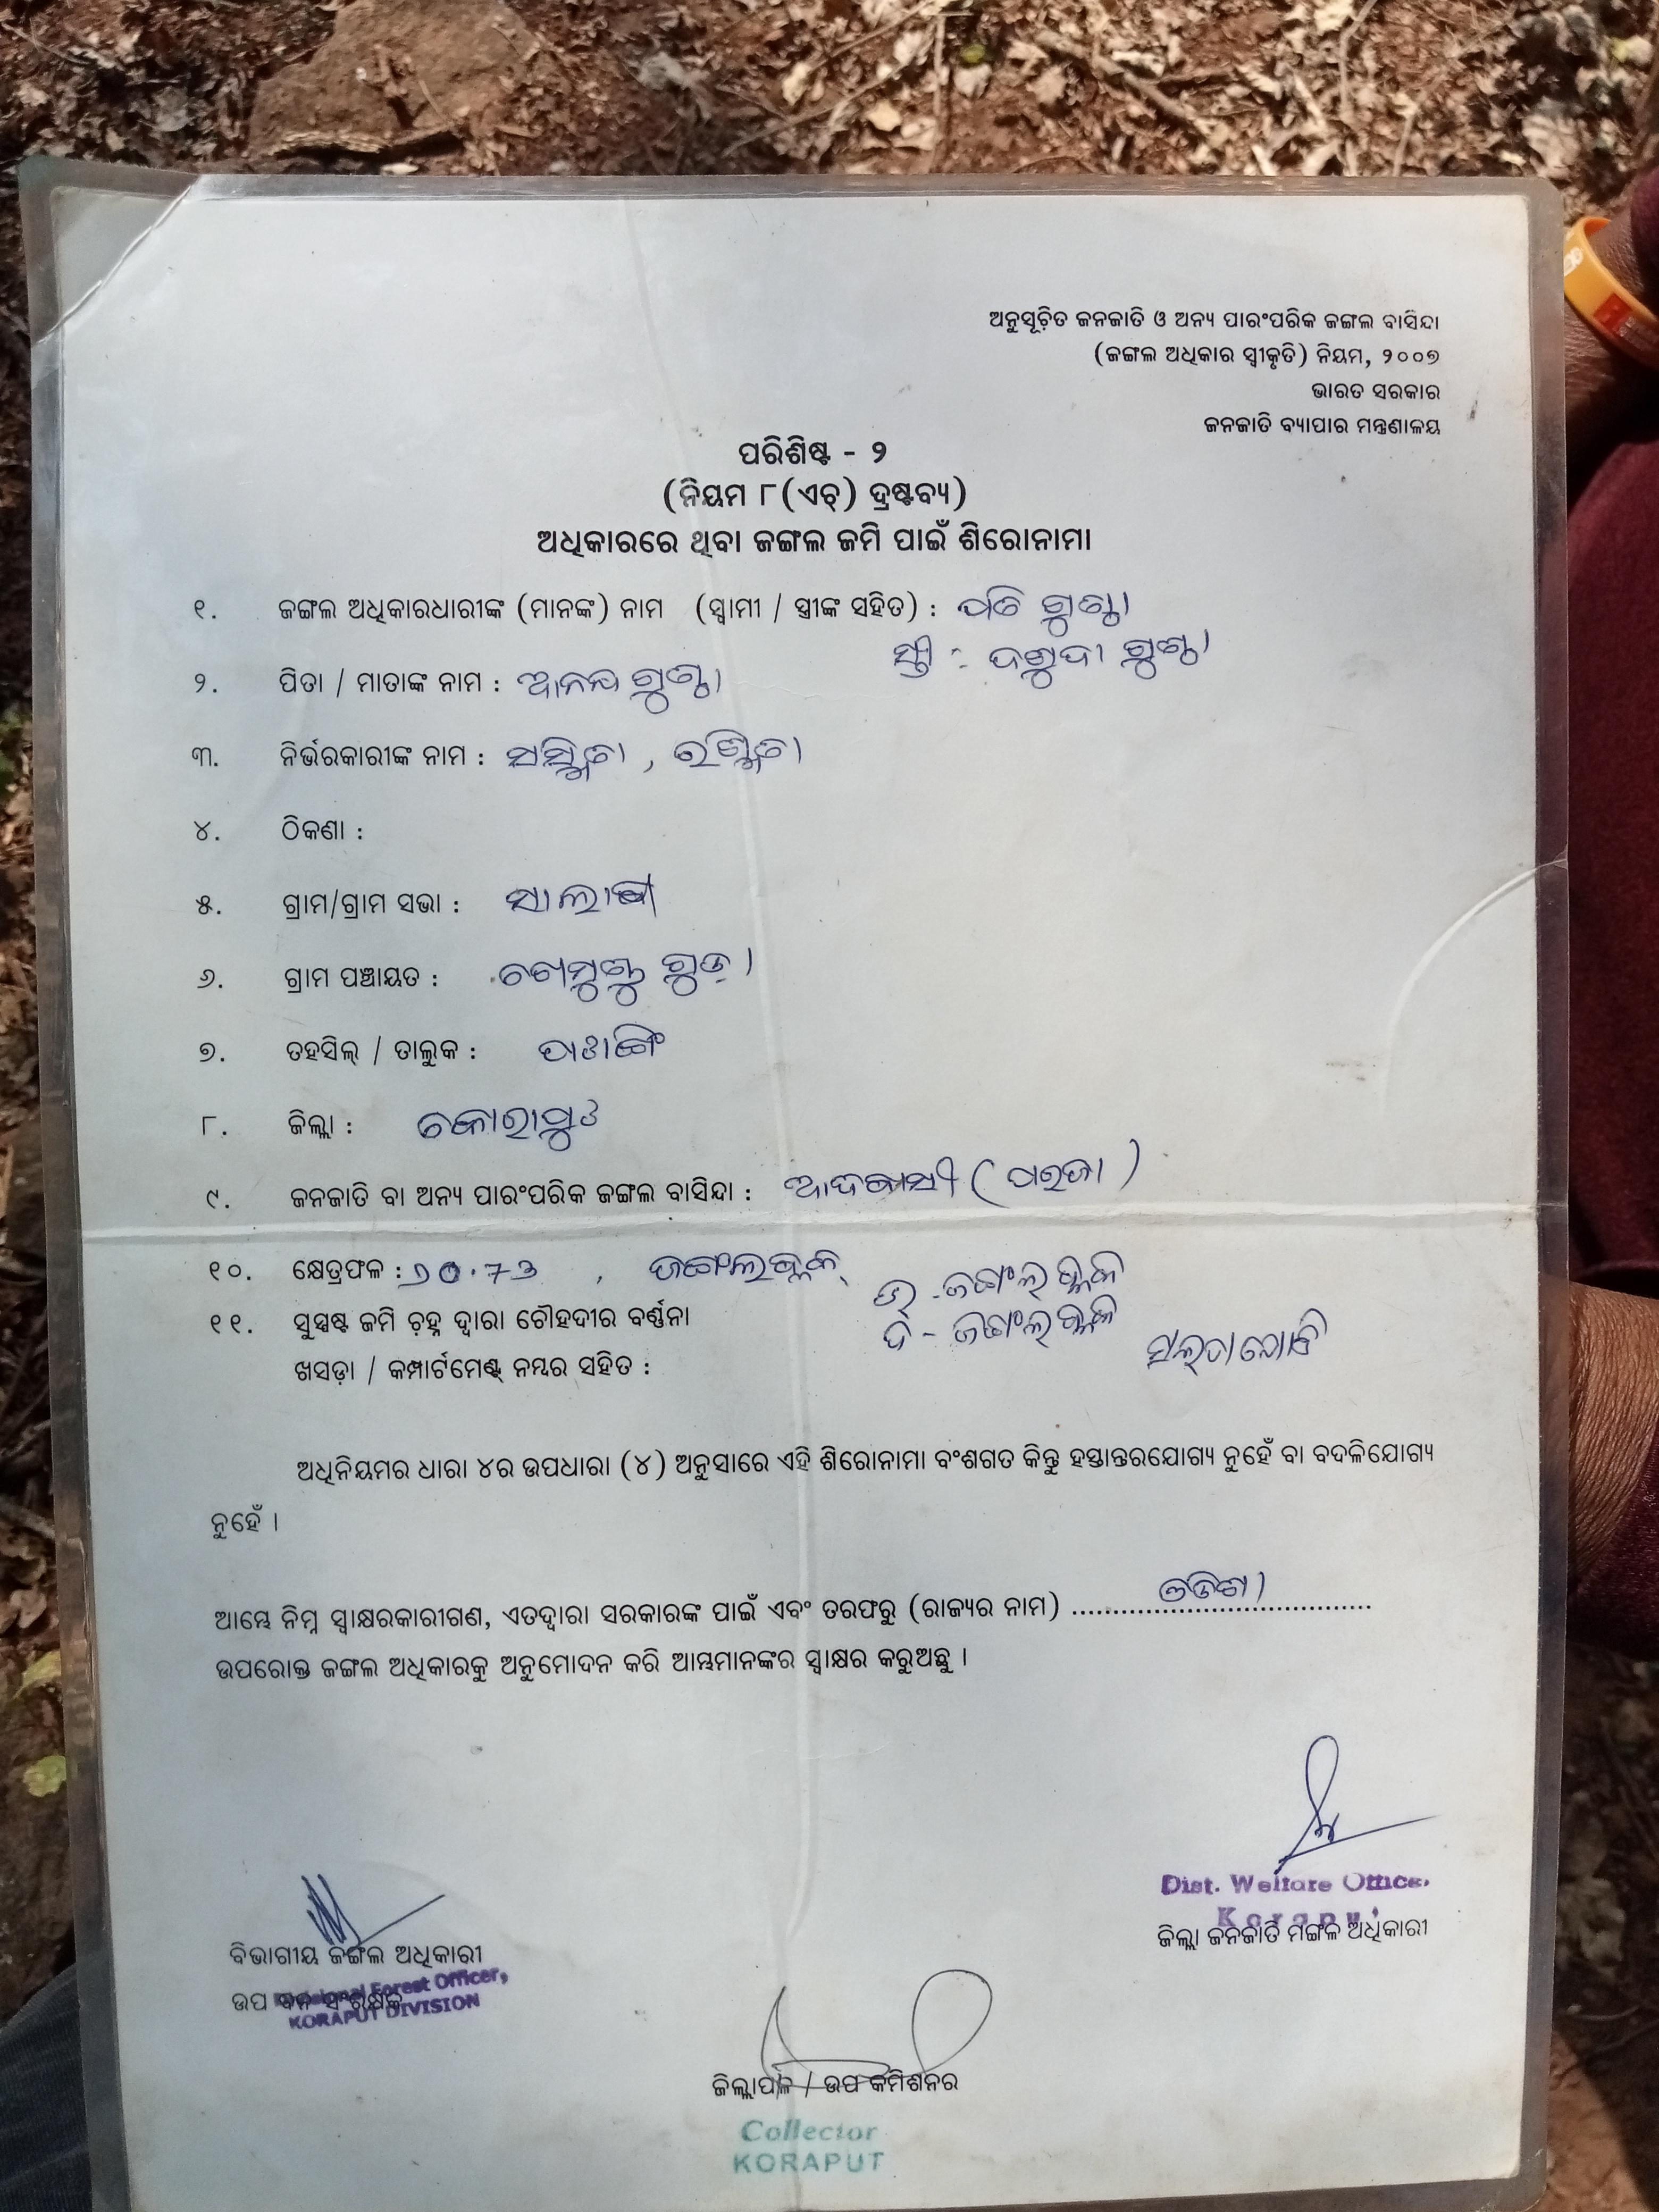 ଅନୁସୂଚିତ ଜନଜାତି ଓ ଅନ୍ୟ ପାରଂପରିକ ଜଙ୍ଗଲ ବାସିନ୍ଦା
(ଜଙ୍ଗଲ ଅଧିକାର ସ୍ୱୀକୃତି) ନିୟମ, ୨୦୦୭
ଭାରତ ସରକାର
ଜନଜାତି ବ୍ୟାପାର ମନ୍ତ୍ରଣାଳୟ
ପରିଶିଷ୍ଟ - ୨
(ନିୟମ ୮(ଏଚ୍) ଦ୍ରଷ୍ଟବ୍ୟ)
ଅଧିକାରରେ ଥିବା ଜଙ୍ଗଲ ଜମି ପାଇଁ ଶିରୋନାମା
୧. ଜଙ୍ଗଲ ଅଧିକାରଧାରୀଙ୍କ (ମାନଙ୍କ) ନାମ (ସ୍ୱାମୀ / ସ୍ତ୍ରୀଙ୍କ ସହିତ) :
ସ୍ତ୍ରୀ :
୨. ପିତା / ମାତାଙ୍କ ନାମ : ଆନନ୍ଦ
୩. ନିର୍ଭରକାରୀଙ୍କ ନାମ : ସସ୍ମିତା ,
୪. ଠିକଣା :
୫. ଗ୍ରାମ/ଗ୍ରାମ ସଭା :
୬. ଗ୍ରାମ ପଞ୍ଚାୟତ :
୭. ତହସିଲ୍ / ତାଲୁକ :
୮. ଜିଲ୍ଲା : କୋରାପୁଟ
୯. ଜନଜାତି ବା ଅନ୍ୟ ପାରଂପରିକ ଜଙ୍ଗଲ ବାସିନ୍ଦା : ଆଦିବାସୀ (ପରଜା)
୧୦. କ୍ଷେତ୍ରଫଳ : , ଜଙ୍ଗଲବ୍ଲକ୍
ଉ - ଜଙ୍ଗଲ ବ୍ଲକ
୧୧. ସୁସ୍ପଷ୍ଟ ଜମି ଚିହ୍ନ ଦ୍ୱାରା ଚୌହଦୀର ବର୍ଣ୍ଣନା
ଦ - ଜଙ୍ଗଲ ବ୍ଲକ
ଖସଡ଼ା / କମ୍ପାର୍ଟମେଣ୍ଟ୍ ନମ୍ବର ସହିତ :
ଅଧିନିୟମର ଧାରା ୪ର ଉପଧାରା (୪) ଅନୁସାରେ ଏହି ଶିରୋନାମା ବଂଶଗତ କିନ୍ତୁ ହସ୍ତାନ୍ତରଯୋଗ୍ୟ ନୁହେଁ ବା ବଦଳିଯୋଗ୍ୟ
ନୁହେଁ ।
ଆମ୍ଭେ ନିମ୍ନ ସ୍ୱାକ୍ଷରକାରୀଗଣ, ଏତଦ୍ୱାରା ସରକାରଙ୍କ ପାଇଁ ଏବଂ ତରଫରୁ (ରାଜ୍ୟର ନାମ) ..... ଓଡିଶା .....
ଉପରୋକ୍ତ ଜଙ୍ଗଲ ଅଧିକାରକୁ ଅନୁମୋଦନ କରି ଆମ୍ଭମାନଙ୍କର ସ୍ୱାକ୍ଷର କରୁଅଛୁ ।
Dist. Welfare Officer
Koraput
ଜିଲ୍ଲା ଜନଜାତି ମଙ୍ଗଳ ଅଧିକାରୀ
ବିଭାଗୀୟ ଜଙ୍ଗଲ ଅଧିକାରୀ
ଉପ ବନ ସଂରକ୍ଷକ
Divisional Forest Officer,
KORAPUT DIVISION
ଜିଲ୍ଲାପାଳ / ଉପ କମିଶନର
Collector
KORAPUT